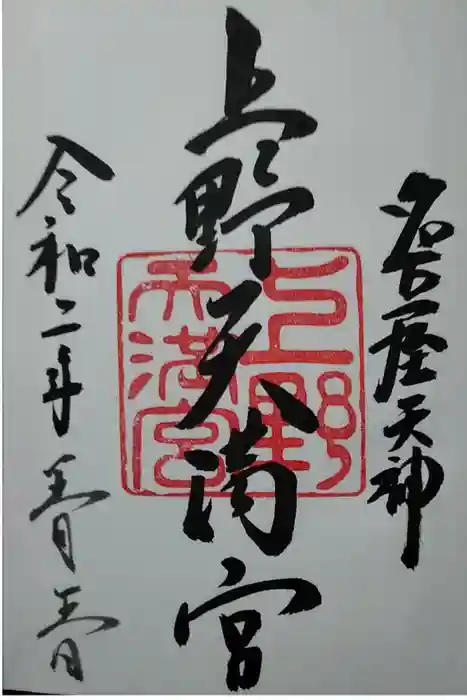 名古屋天神
上野天満宮
令和二年五月五日
上野
天満宮